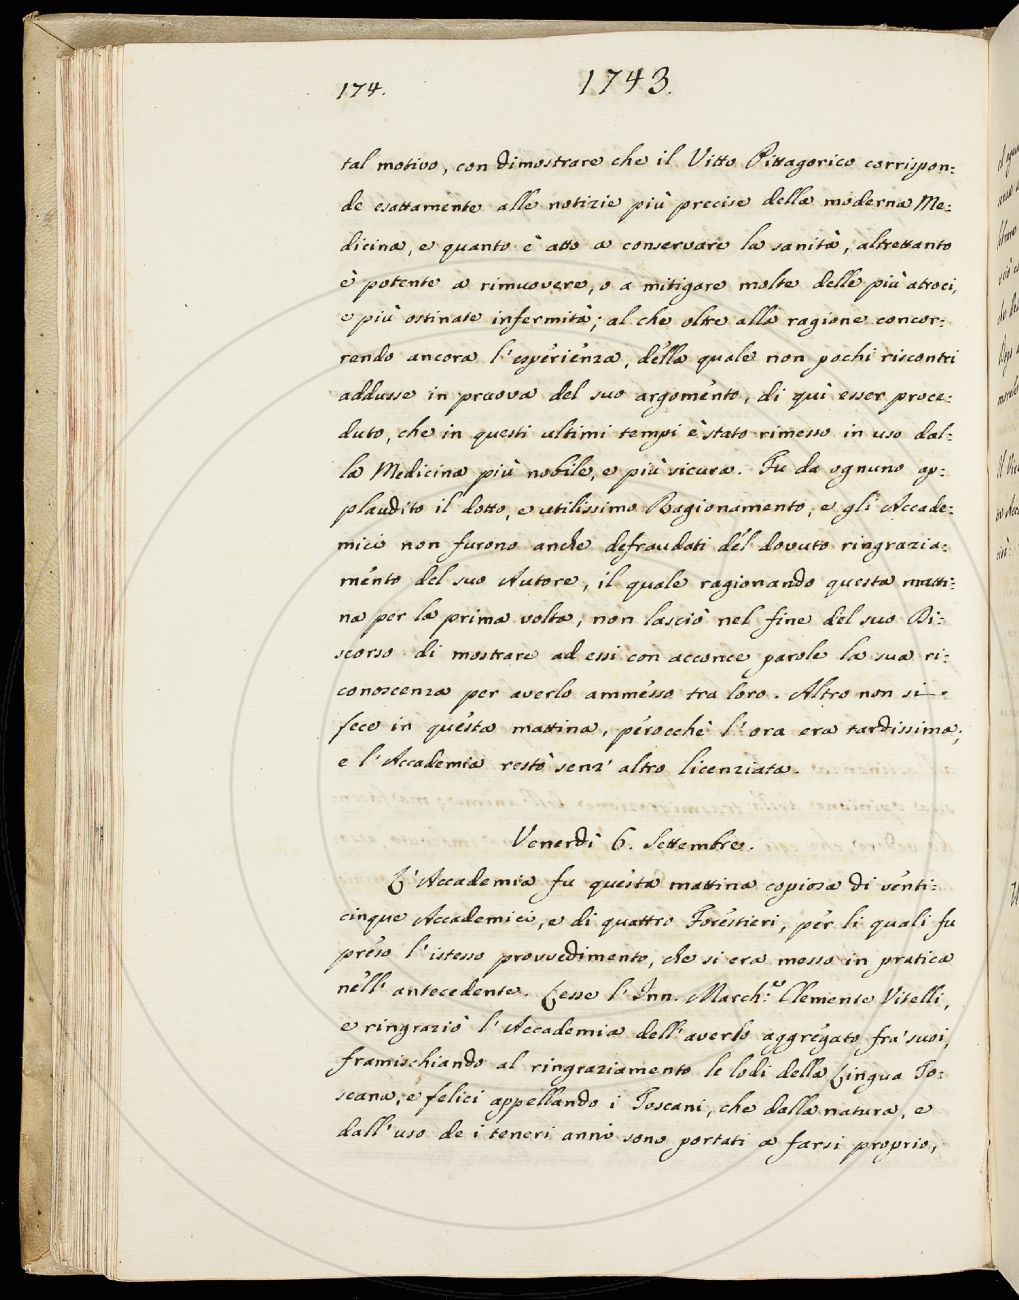 174.
1743.
tal motivo, con dimostrare che il Vitto Pittagorico corrispon:
de esattamente alle notizie più precise della moderna Me:
dicina, e quanto è atto a conservare la sanità, altrettanto
è potente a rimuovere, o a mitigare molte delle più atroci,
e più ostinate infermità; al che oltre alla ragione concor:
rendo ancora l'esperienza, della quale non pochi riscontri
addusse in pruova del suo argomento, di quì esser proce:
duto, che in questi ultimi tempi è stato rimesso in uso dal:
la Medicina più nobile, e più sicura. Fu da ognuno ap:
plaudito il dotto, e utilissimo Ragionamento, e gli Accade:
mici non furono anche defraudati del dovuto ringrazia:
mento del suo Autore, il quale ragionando questa matti:
na per la prima volta, non lasciò nel fine del suo Di:
scorso di mostrare ad essi con acconce parole la sua ri:
conoscenza per averlo ammesso tra loro. Altro non si
fece in questa mattina, perocchè l'ora era tardissima;
e l'Accademia restò senz'altro licenziata.
Venerdì 6. Settembre.
L'Accademia fu questa mattina copiosa di venti:
cinque Accademici, e di quattro Forestieri, per li quali fu
preso l'istesso provvedimento, che si era messo in pratica
nell'antecedente. Lesse l'Inn. March:e Clemente Vitelli,
e ringraziò l'Accademia dell'averlo aggregato fra' suoi,
framischiando al ringraziamento le lodi della Lingua To:
scana, e felici appellando i Toscani, che dalla natura, e
dall'uso de i teneri anni sono portati a farsi proprio,